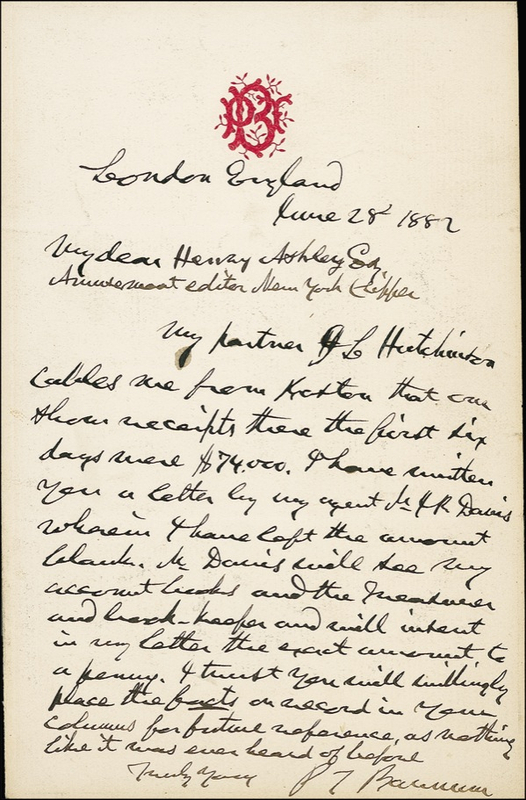 PTB
London England
June 28 1882
My dear Henry Ashley Esq.
Amusement editor New York Clipper
My partner J L Hutchinson
cables me from Boston that our
show receipts there the first six
days were $74.000. I have written
you a letter by my agent Mr. Davis
wherein I have left the amount
blank. Mr Davis will see my
account books and the Treasurer
and book-keeper and will insert
in my letter the exact amount to
a penny. I trust you will willingly
place the facts on record in your
columns for future reference, as nothing
like it was ever heard of before
Truly Yours P T Barnum